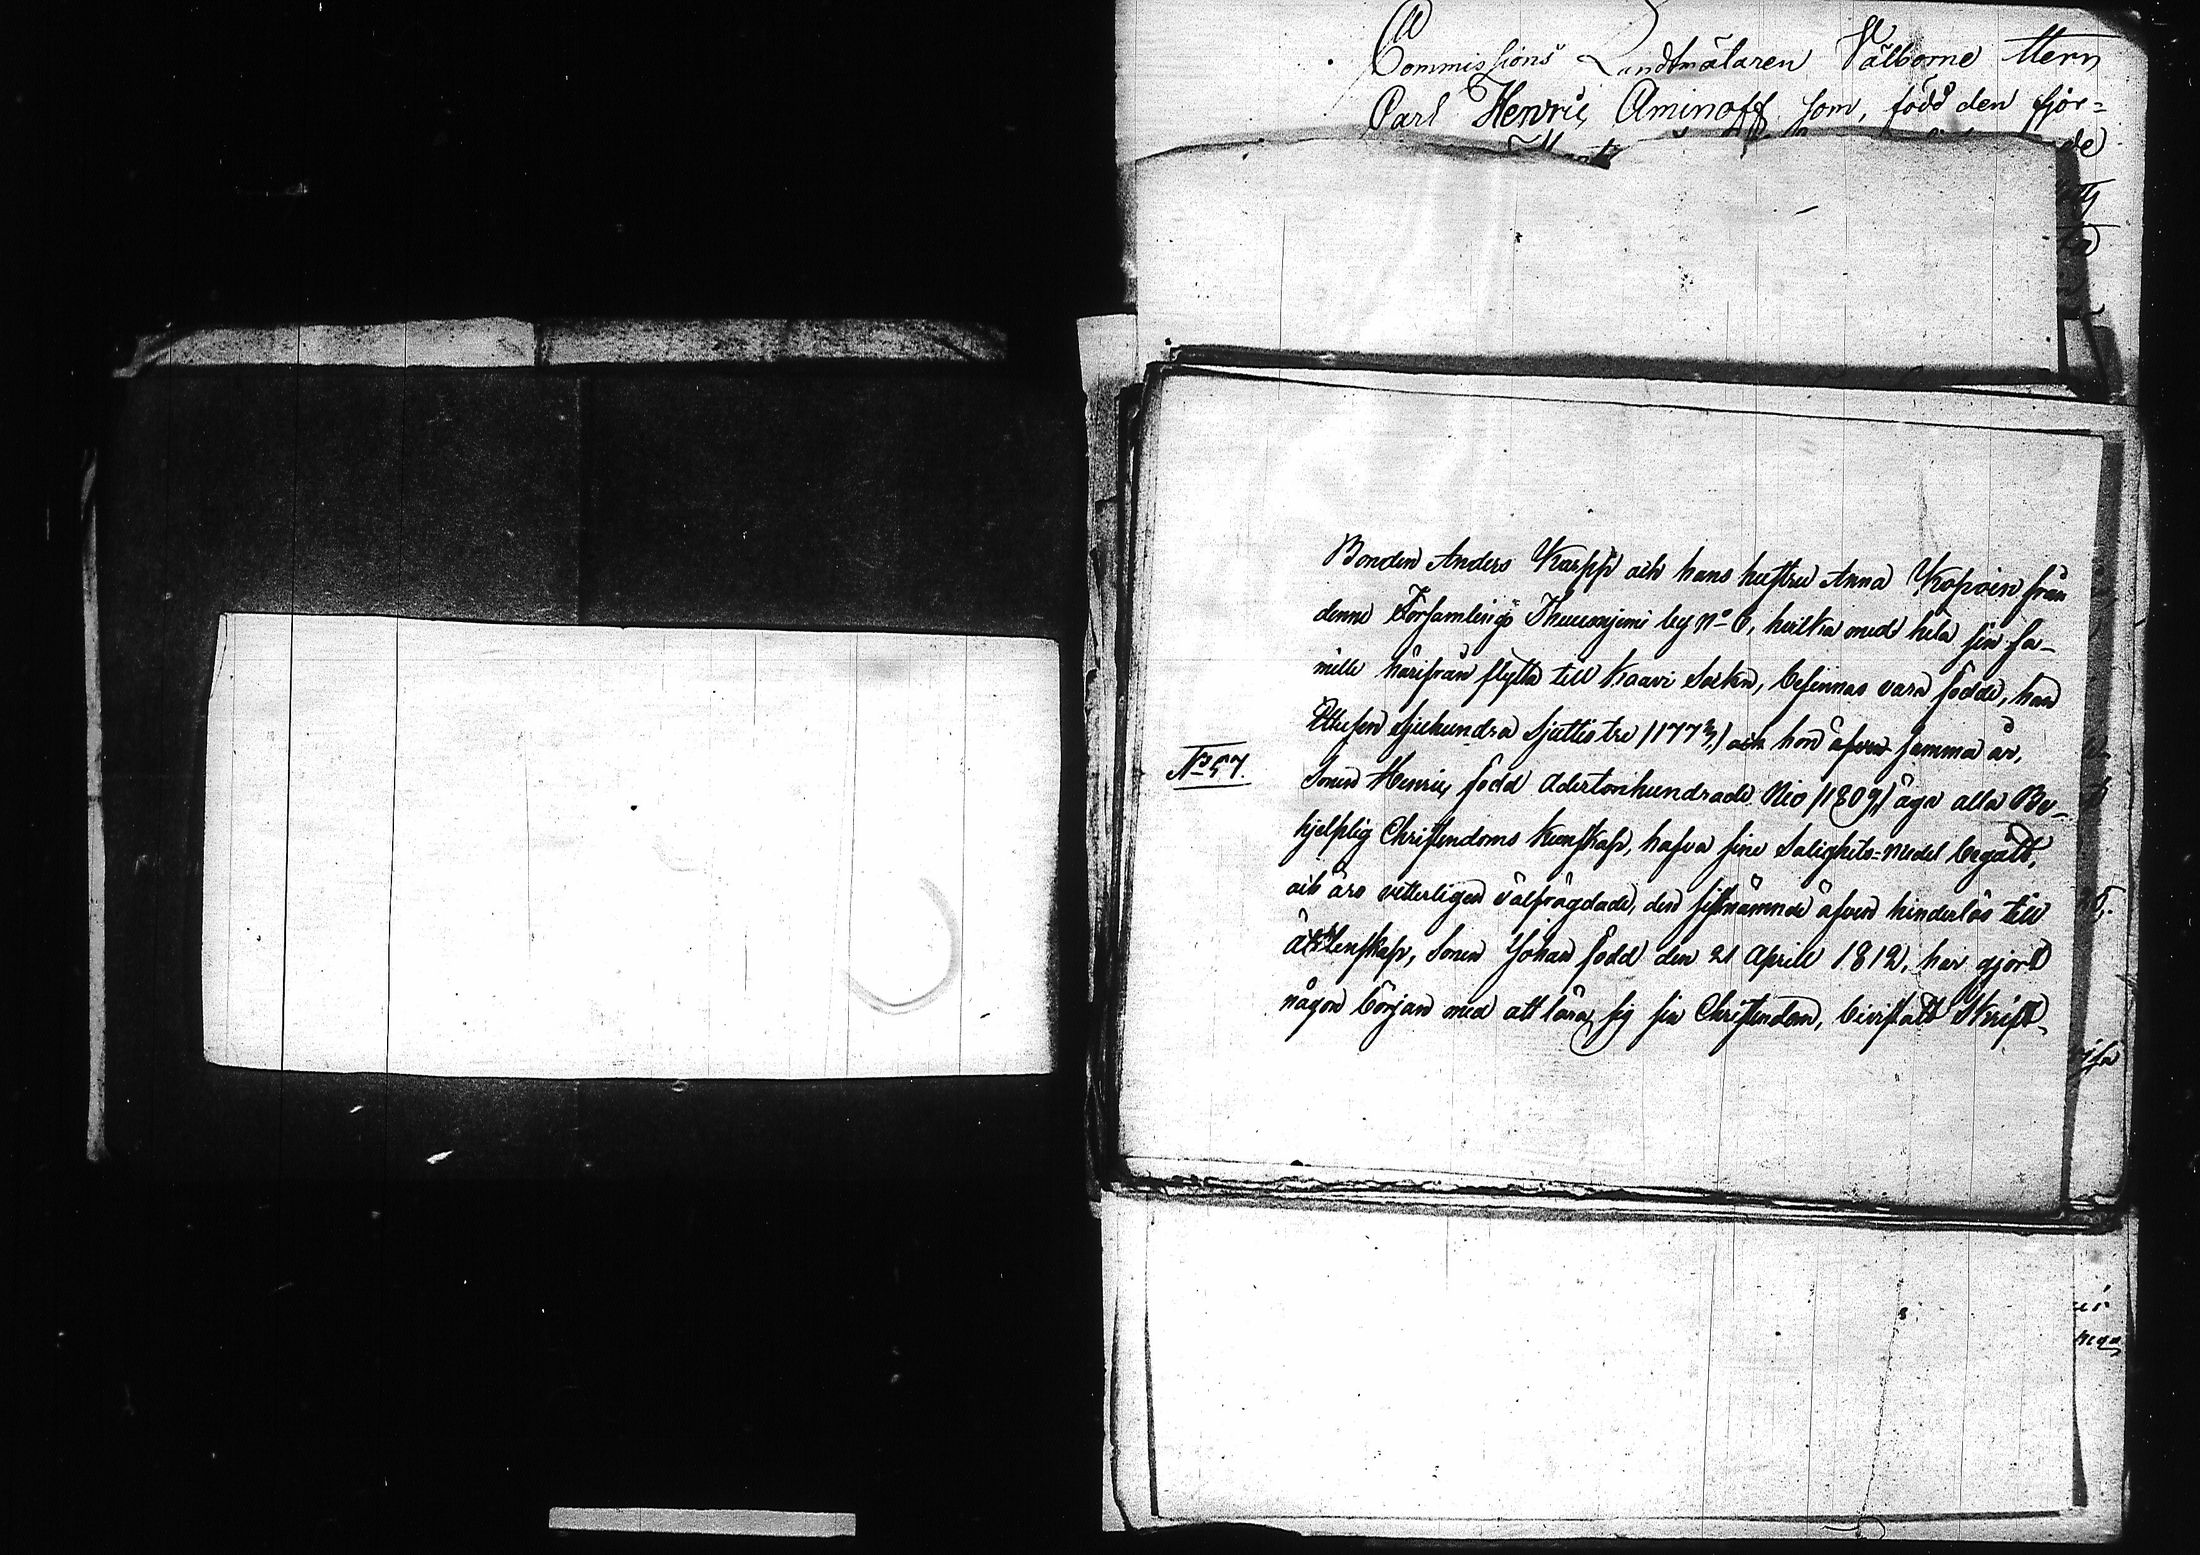 Commissions Landtmätaren Välborne Herr
Carl Henric Aminoff som, född den fjor=
de
Bonden Anders Karppi och hans hustru Anna Kopoin från
denne Församlings Thuusnjemi by No 6, hvilka med hela sin fa-
mille härifrån flytta till Kaavi Socken, befinnas vara födde, han
Ettusen Sjuhundra Sjuttio tre /1773/ och hon äfven samma år,
Sonen Henric, född Adertonhundrade Nio /1809/ äga alla Be-
hjelplig Christendoms Kunskap, hafva sine Salighets=Medel begått,
och äro vitterligen välfrägdade, den sistnämnde äfven hinderlös till
Äktenskap, Sonen Johan född den 21 Aprill 1812, har gjort
någon början med att lära sig sin Christendom, bivistatt Skrift-
No 57.